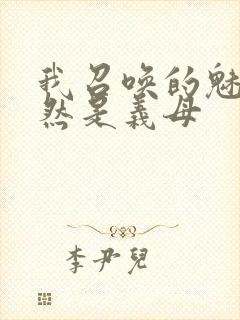 我召唤的魅
然是義母
李尹兒